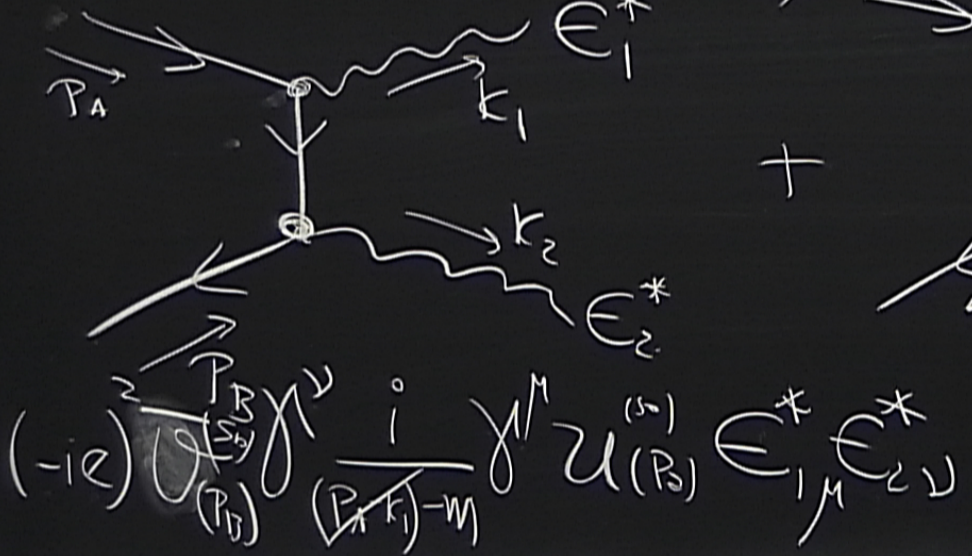 ϵ₁*
P_A
k₁
+
k₂
ϵ₂*
P_B
(-ie)² v̄^(s_B)(P_B) γ^ν i/((P̸_A-k̸₁)-m) γ^μ u^(s_0)(P_3) ϵ*_1μ ϵ*_2ν